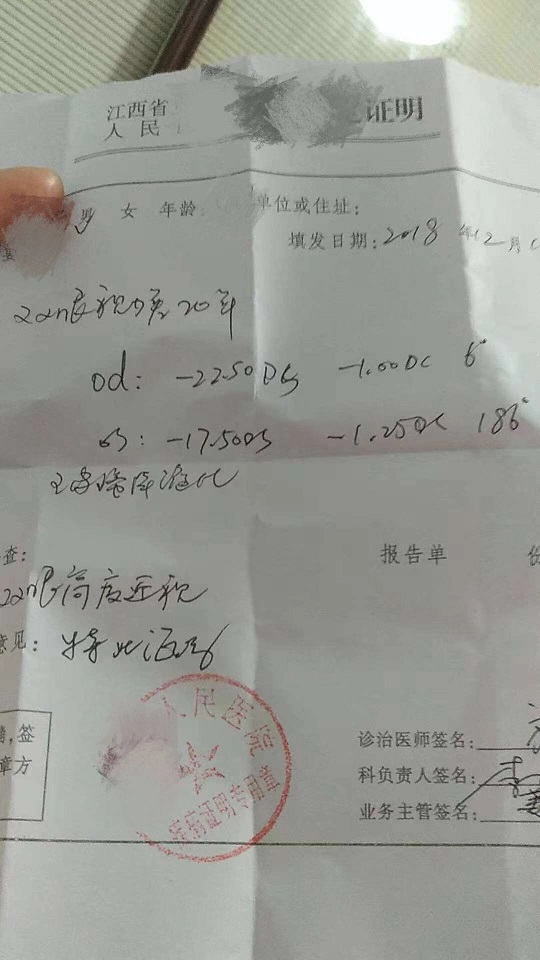 江西省
人民 证明
男 女 年龄: 单位或住址:
填发日期: 2018 年12月
双眼视力差20年
od: -22.50DS -1.00DC 6°
os: -17.50DS -1.25DC 180°
查: 报告单
双眼高度近视
意见: 特此证明
签 章方
人民医院
疾病证明专用章
诊治医师签名:
科负责人签名:
业务主管签名: